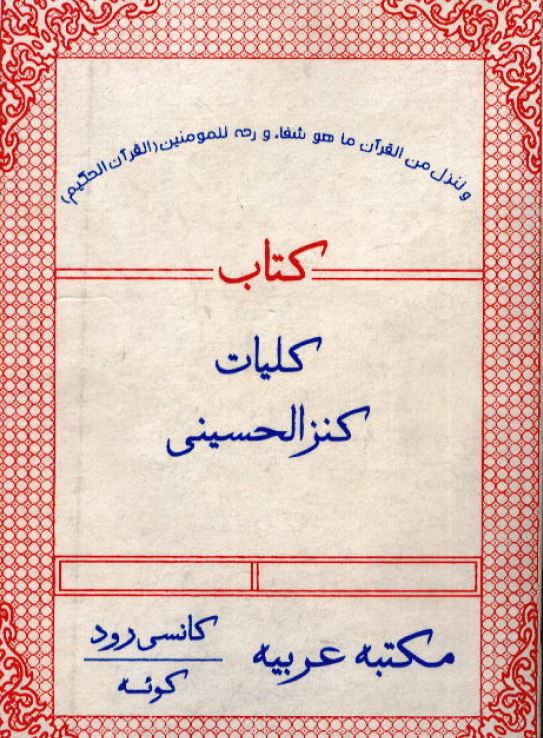 و لنزل من القرآن ما هو شفاء و رحه للمومنین (القرآن الحکیم)
کتاب
کلیات
کنز الحسینی
مکتبه عربیه
کانسی رود
کوئٹه